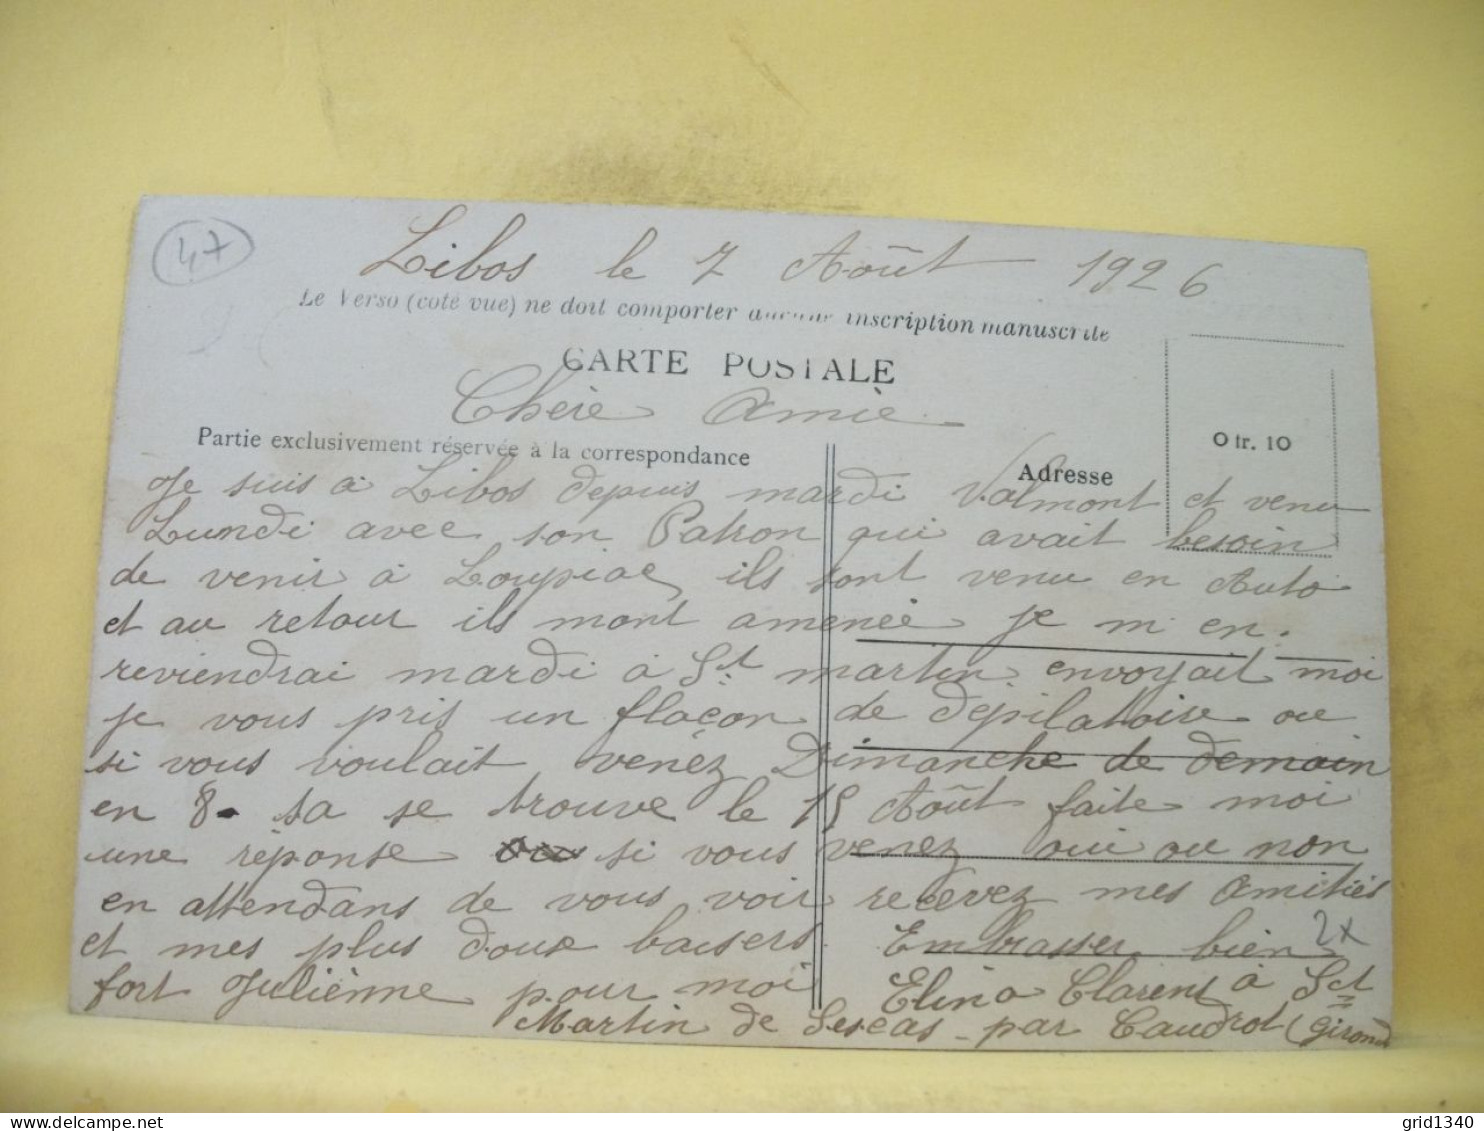 47
Libos le 7 Août 1926
Le Verso (coté vue) ne doit comporter aucune inscription manuscrite
CARTE POSTALE
Chère Amie
Partie exclusivement réservée à la correspondance
Adresse
0 fr. 10
Je suis à Libos depuis mardi Valmont et venu
Lundi avec son Patron qui avait besoin
de venir à Loupiac ils sont venu en Auto
et au retour ils mont amenée je m en.
reviendrai mardi à St martin. envoyait moi
je vous pris un flaçon de depilatoire ou
si vous voulait venéz Dimanche de demain
en 8. sa se trouve le 15 Août faite moi
une réponse si vous venez oui ou non
en attendans de vous voir recevez mes Amitiés
et mes plus doux baisers. Embrasser bien
2x
fort Juliènne pour moi Elina Clarens à St
Martin de Sescas - par Caudrot (Gironde
grid1340